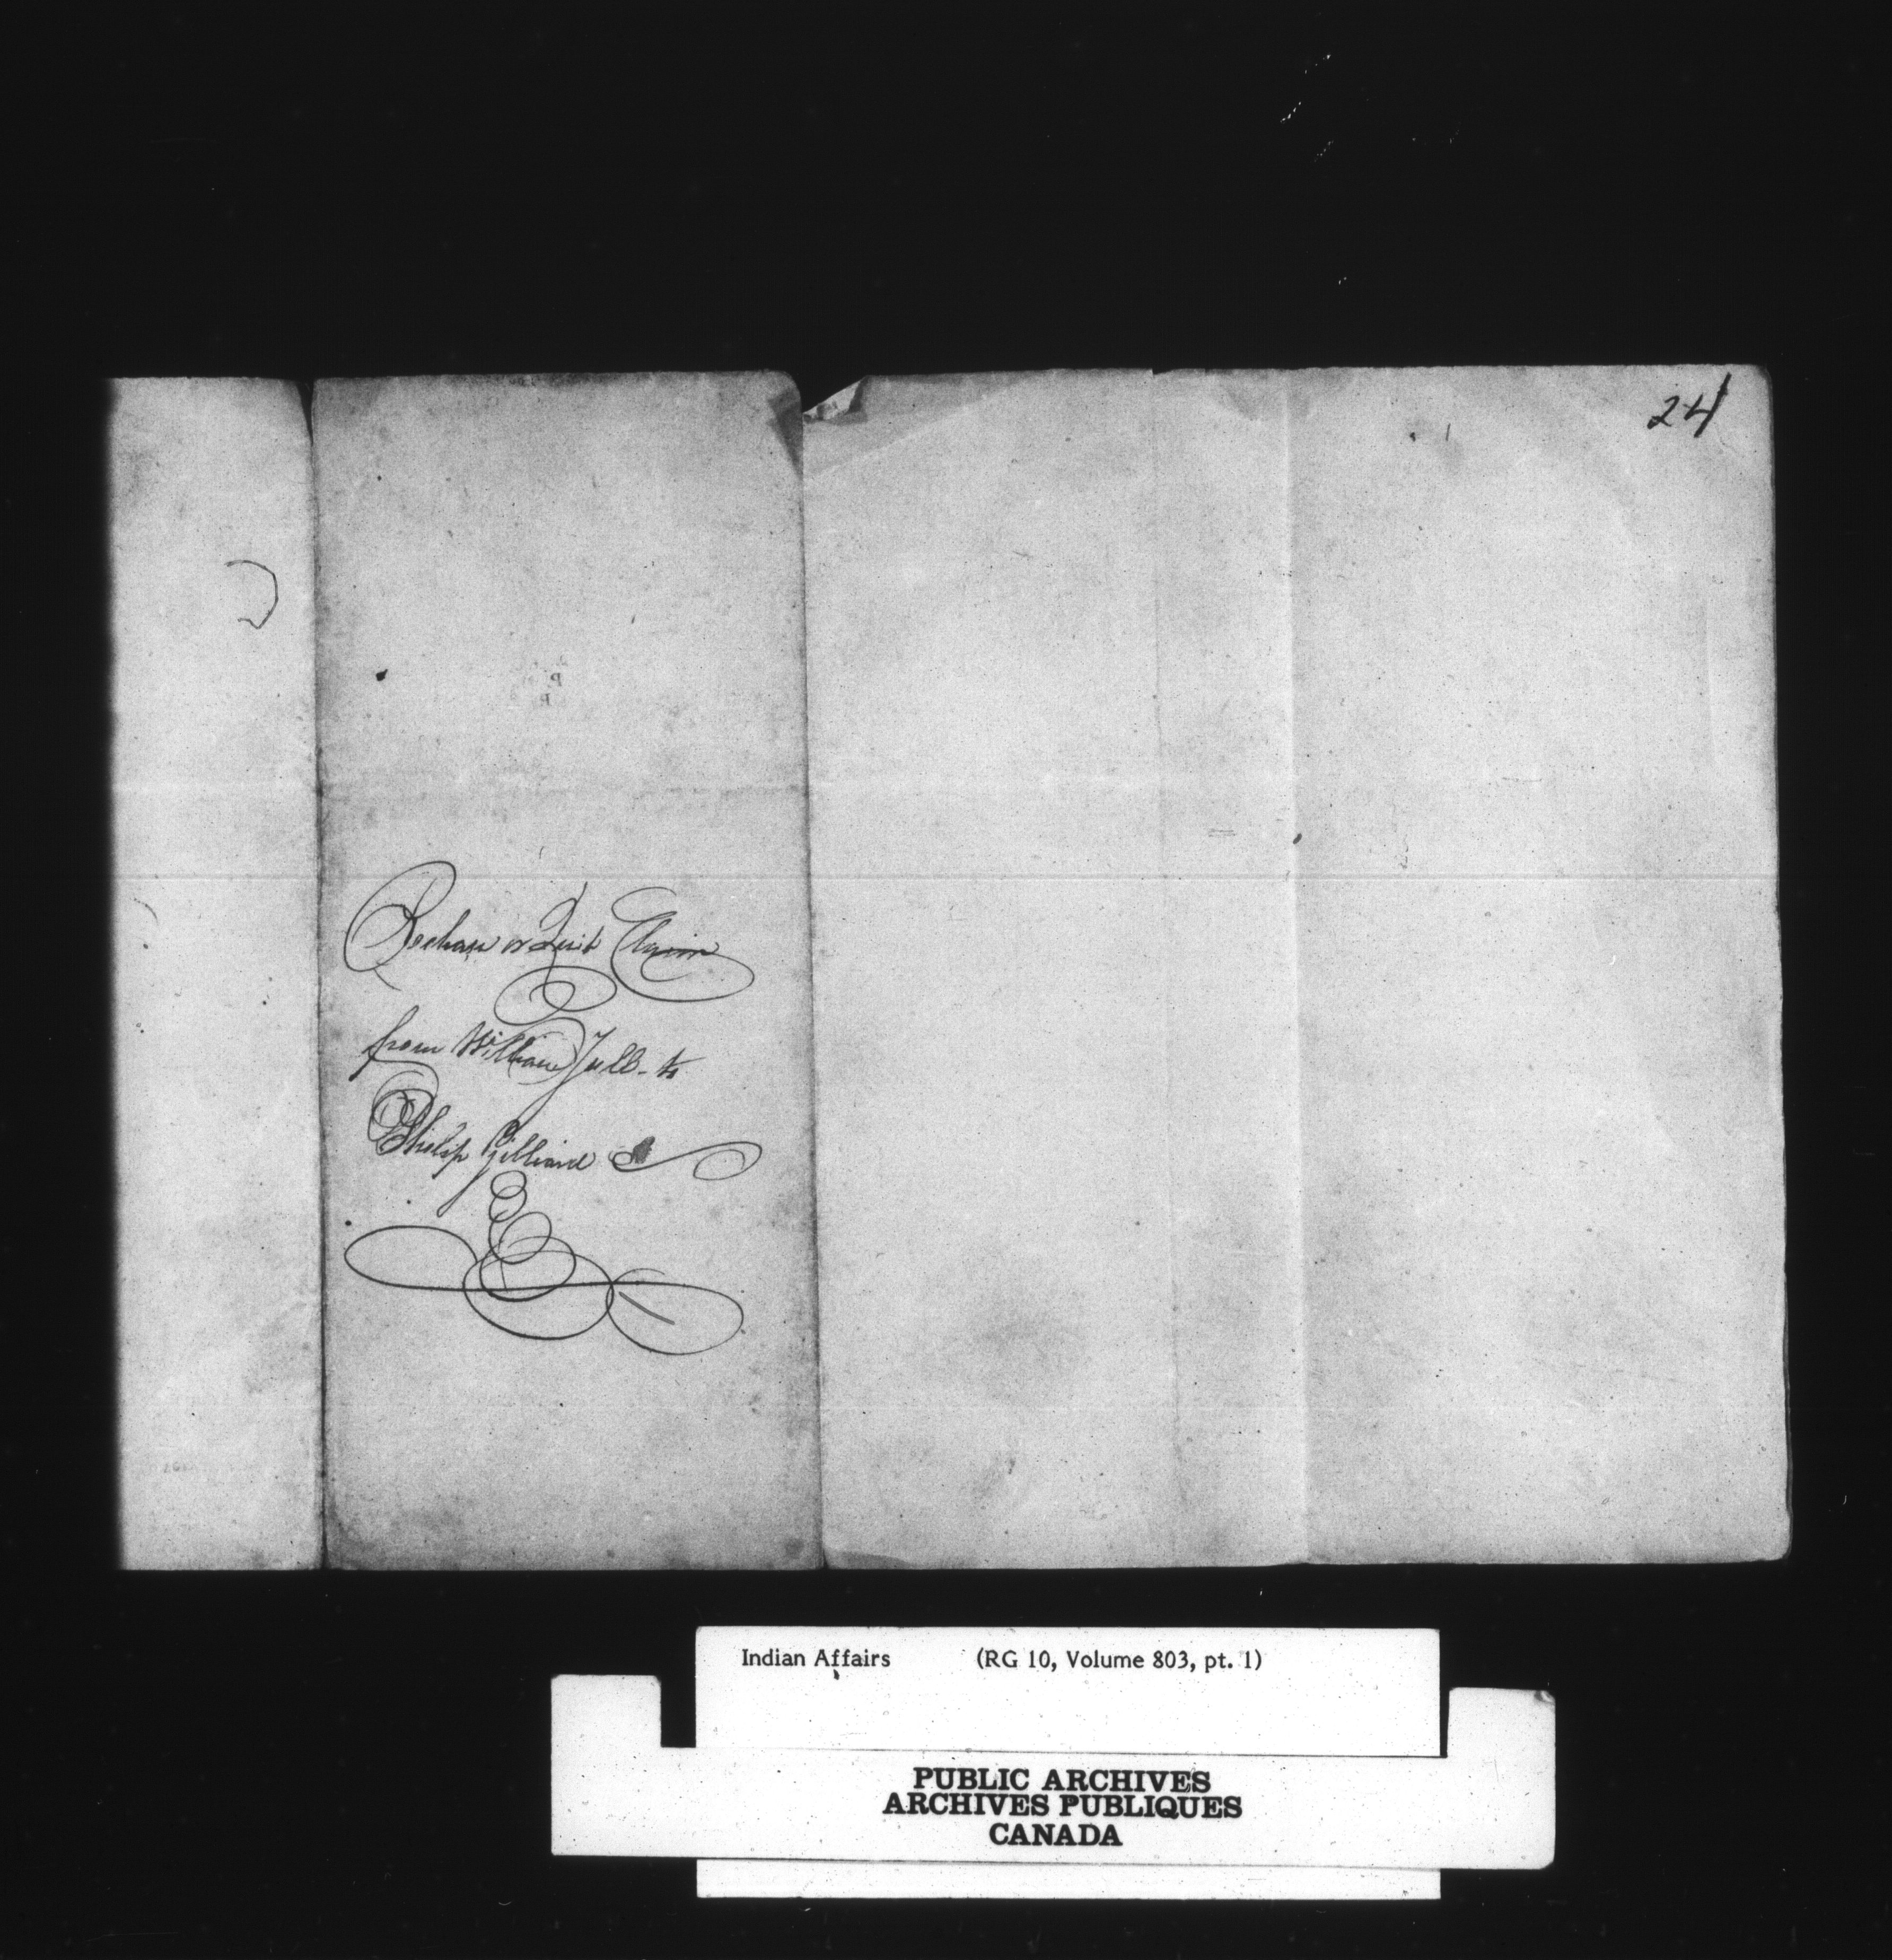 24
or Quit Claim
from William Tull - to
Philip Gilliard
Indian Affairs (RG 10, Volume 803, pt. 1)
PUBLIC ARCHIVES
ARCHIVES PUBLIQUES
CANADA